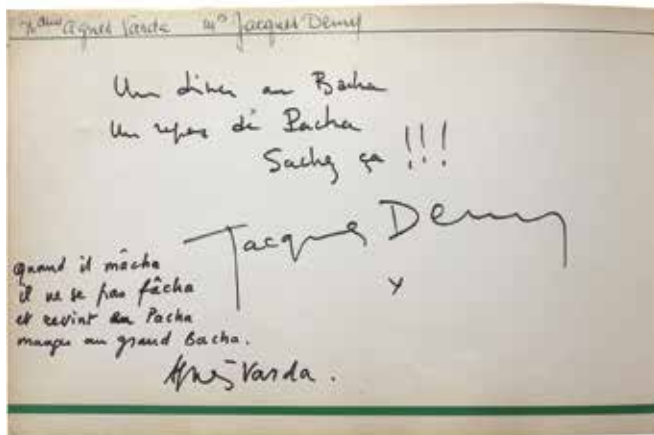 Mme Agnès Varda Mr Jacques Demy
Un diner au Bacha
Un repas de Pacha
Sachez ça !!!
Jacques Demy
x
quand il mâcha
il ne se pas fâcha
et revint en Pacha
manger au grand Bacha.
Agnès Varda.